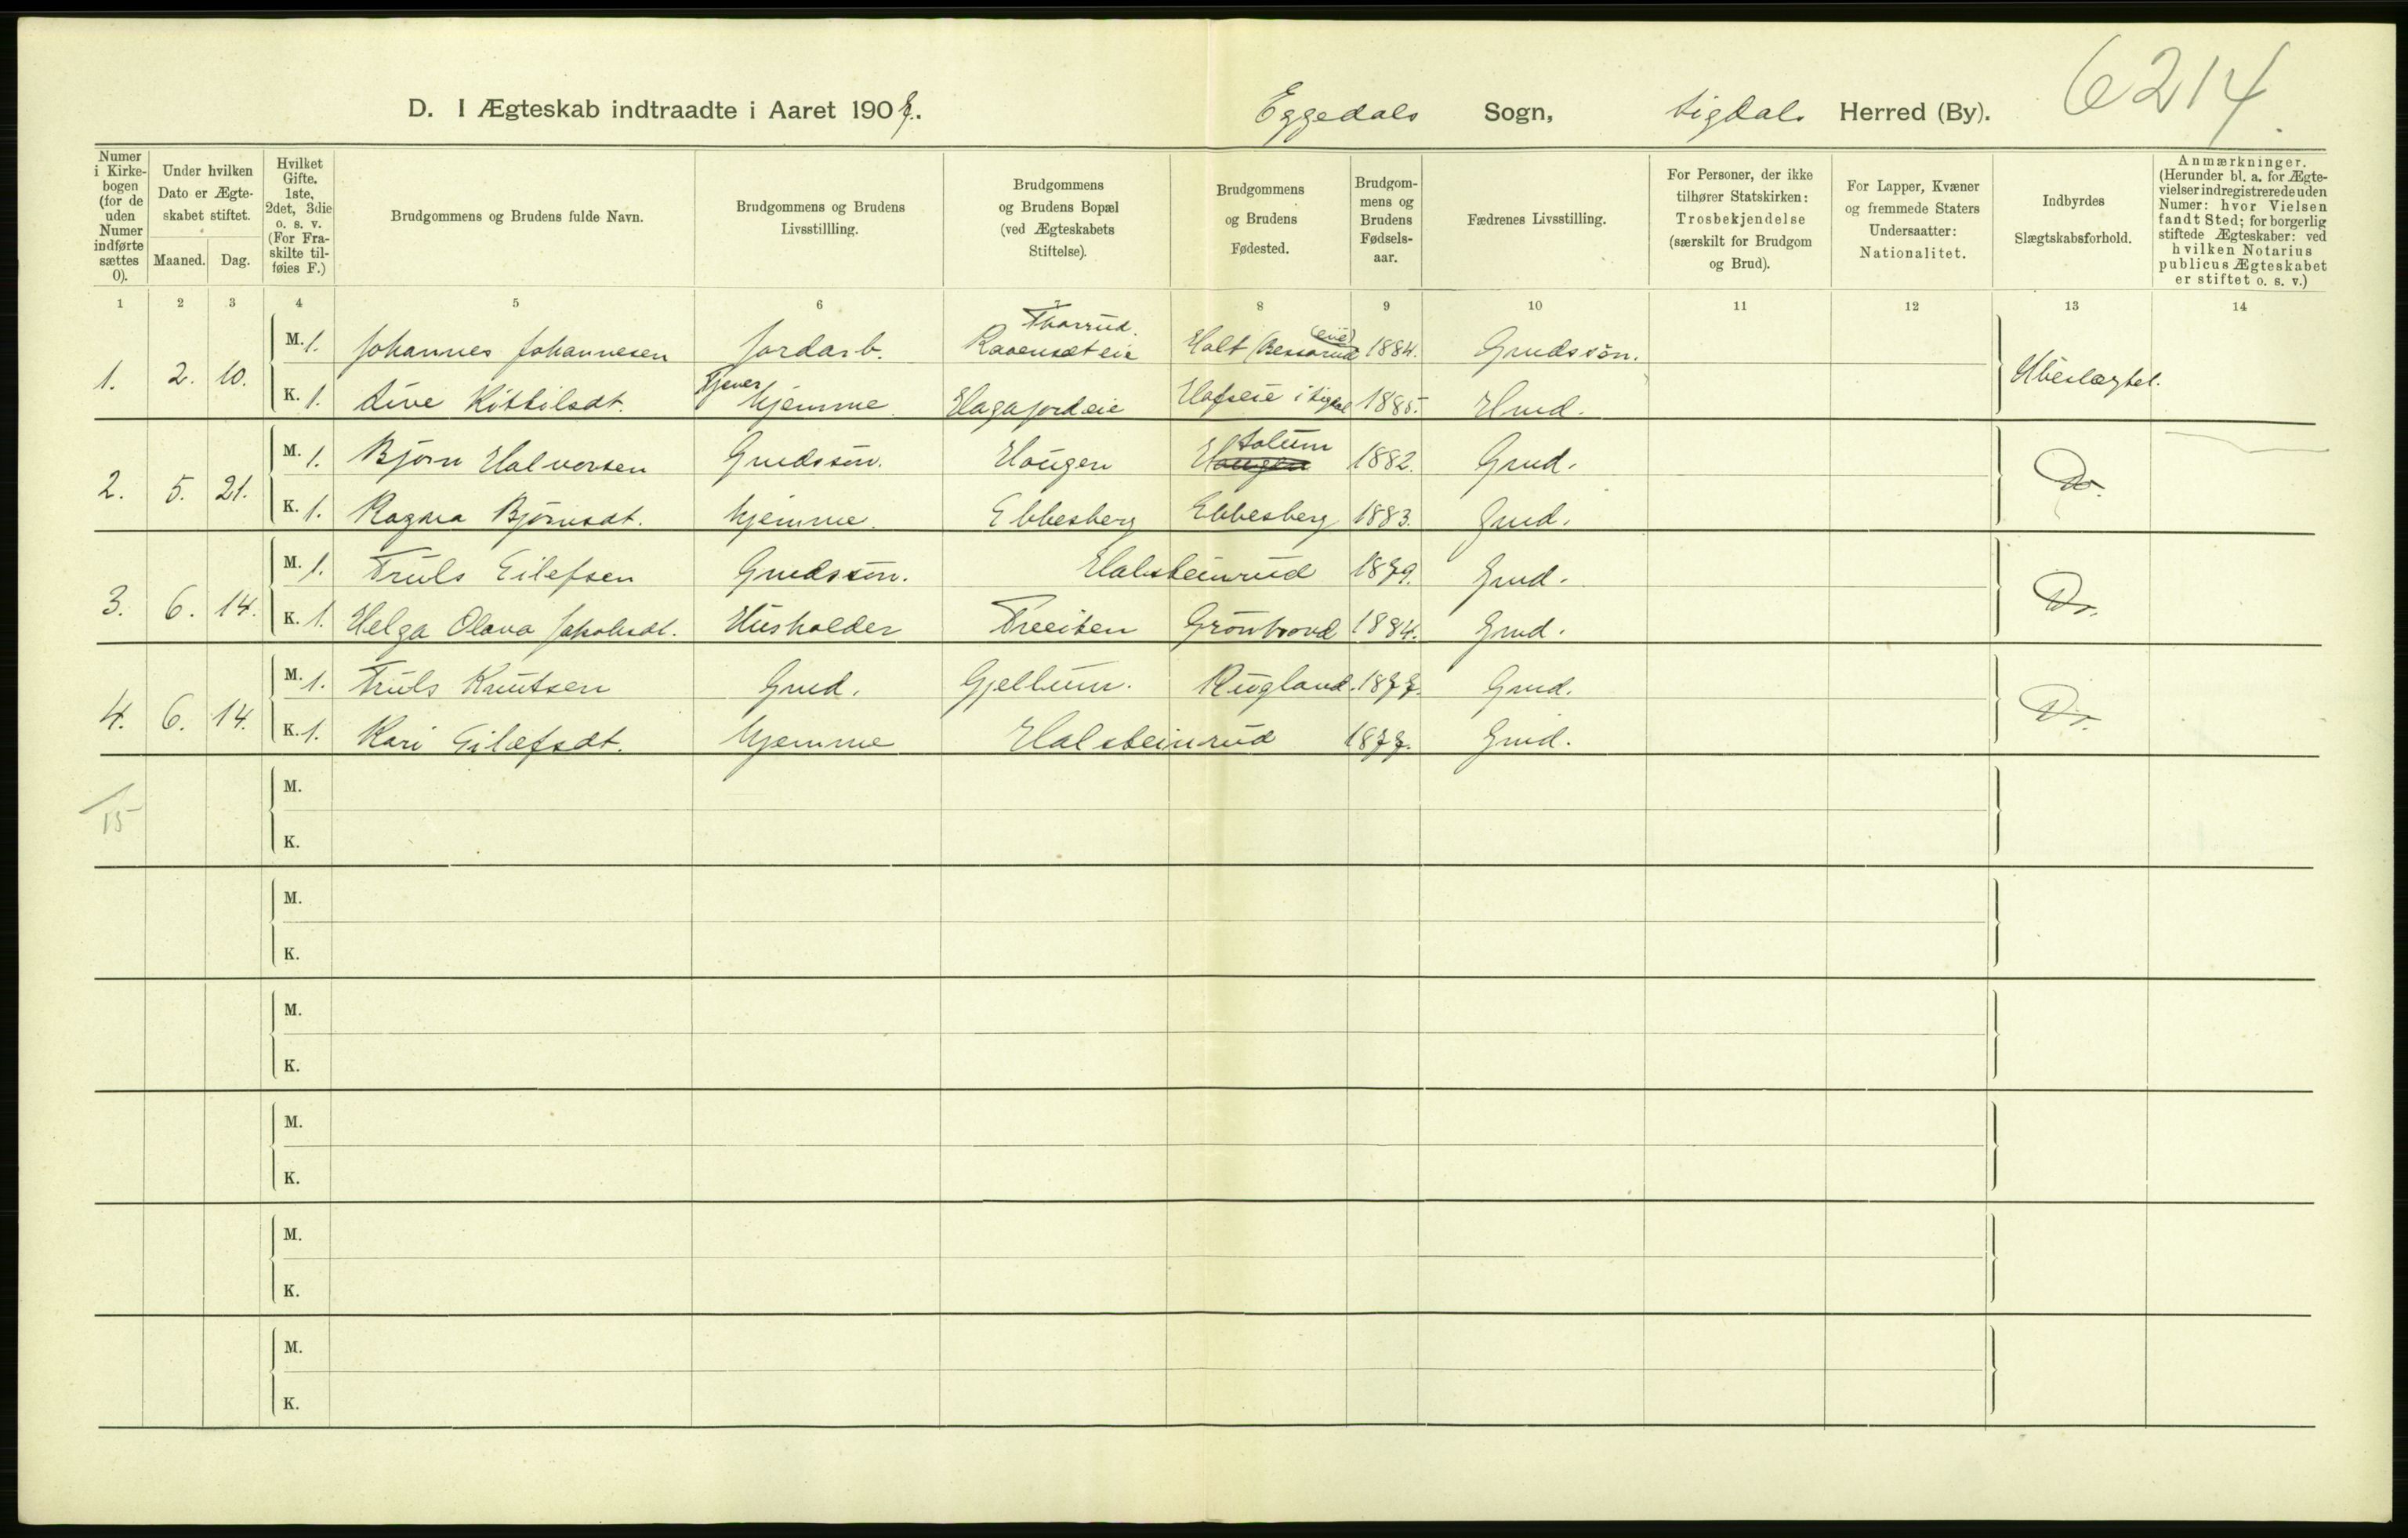 6214.
D. I Ægteskab indtraadte i Aaret 1907. Eggedals Sogn, Sigdals Herred (By).
Numer i Kirke-bogen (for de uden Numer indførte sættes 0).
Under hvilken Dato er Ægte-skabet stiftet.
Maaned. Dag.
Hvilket Gifte. 1ste, 2det, 3die o. s. v. (For Fra-skilte til-føies F.)
Brudgommens og Brudens fulde Navn.
Brudgommens og Brudens Livsstillling.
Brudgommens og Brudens Bopæl (ved Ægteskabets Stiftelse).
Brudgommens og Brudens Fødested.
Brudgom-mens og Brudens Fødsels-aar.
Fædrenes Livsstilling.
For Personer, der ikke tilhører Statskirken: Trosbekjendelse (særskilt for Brudgom og Brud).
For Lapper, Kvæner og fremmede Staters Undersaatter: Nationalitet.
Indbyrdes Slægtskabsforhold.
Anmærkninger. (Herunder bl. a. for Ægte-vielser indregistrerede uden Numer: hvor Vielsen fandt Sted; for borgerlig stiftede Ægteskaber: ved hvilken Notarius publicus Ægteskabet er stiftet o. s. v.)
1 2 3 4 5 6 7 8 9 10 11 12 13 14
1. 2. 10. Ubeslægtet.
M. 1. Johannes Johannesen Jordarb. Thorrud. Ravensæteie Holt (Bessarud eie) 1884. Grudssøn.
K. 1. Live Kittilsdt. Tjener hjemme Hagafjordeie Hofseie i Sigdal 1885. Hmd.
2. 5. 21. Do.
M. 1. Bjørn Halvorsen Grudssøn. Haugen Haugen Solum 1882. Grud.
K. 1. Ragna Bjørnsdt. hjemme. Ebbesberg Ebbesberg 1883. Grud.
3. 6. 14. Do.
M. 1. Truls Eilefsen Grudssøn. Halsteinrud 1879. Grud.
K. 1. Helga Olava Jakobsdt. Husholder Treeiten Grønhovd 1884. Grud.
4. 6. 14. Do.
M. 1. Truls Knutsen Grud. Gjellum. Rugland. 1877. Grud.
K. 1. Kari Eilefsdt. hjemme Halsteinrud 1877. Grud.
15
M.
K.
M.
K.
M.
K.
M.
K.
M.
K.
M.
K.